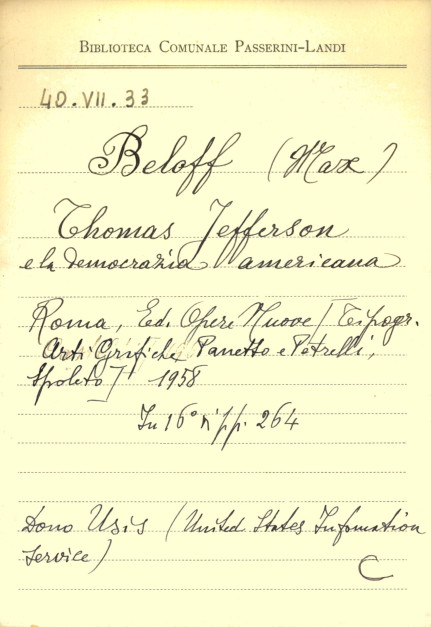 BIBLIOTECA COMUNALE PASSERINI-LANDI
40.VII.33
Beloff (Max)
Thomas Jefferson
e la democrazia americana
Roma, Ed. Opere Nuove [Tipogr.
Arti Grafiche Panetto e Petrelli,
Spoleto] 1958
In 16° pp. 264
Dono Usis (United States Information
Service)
C